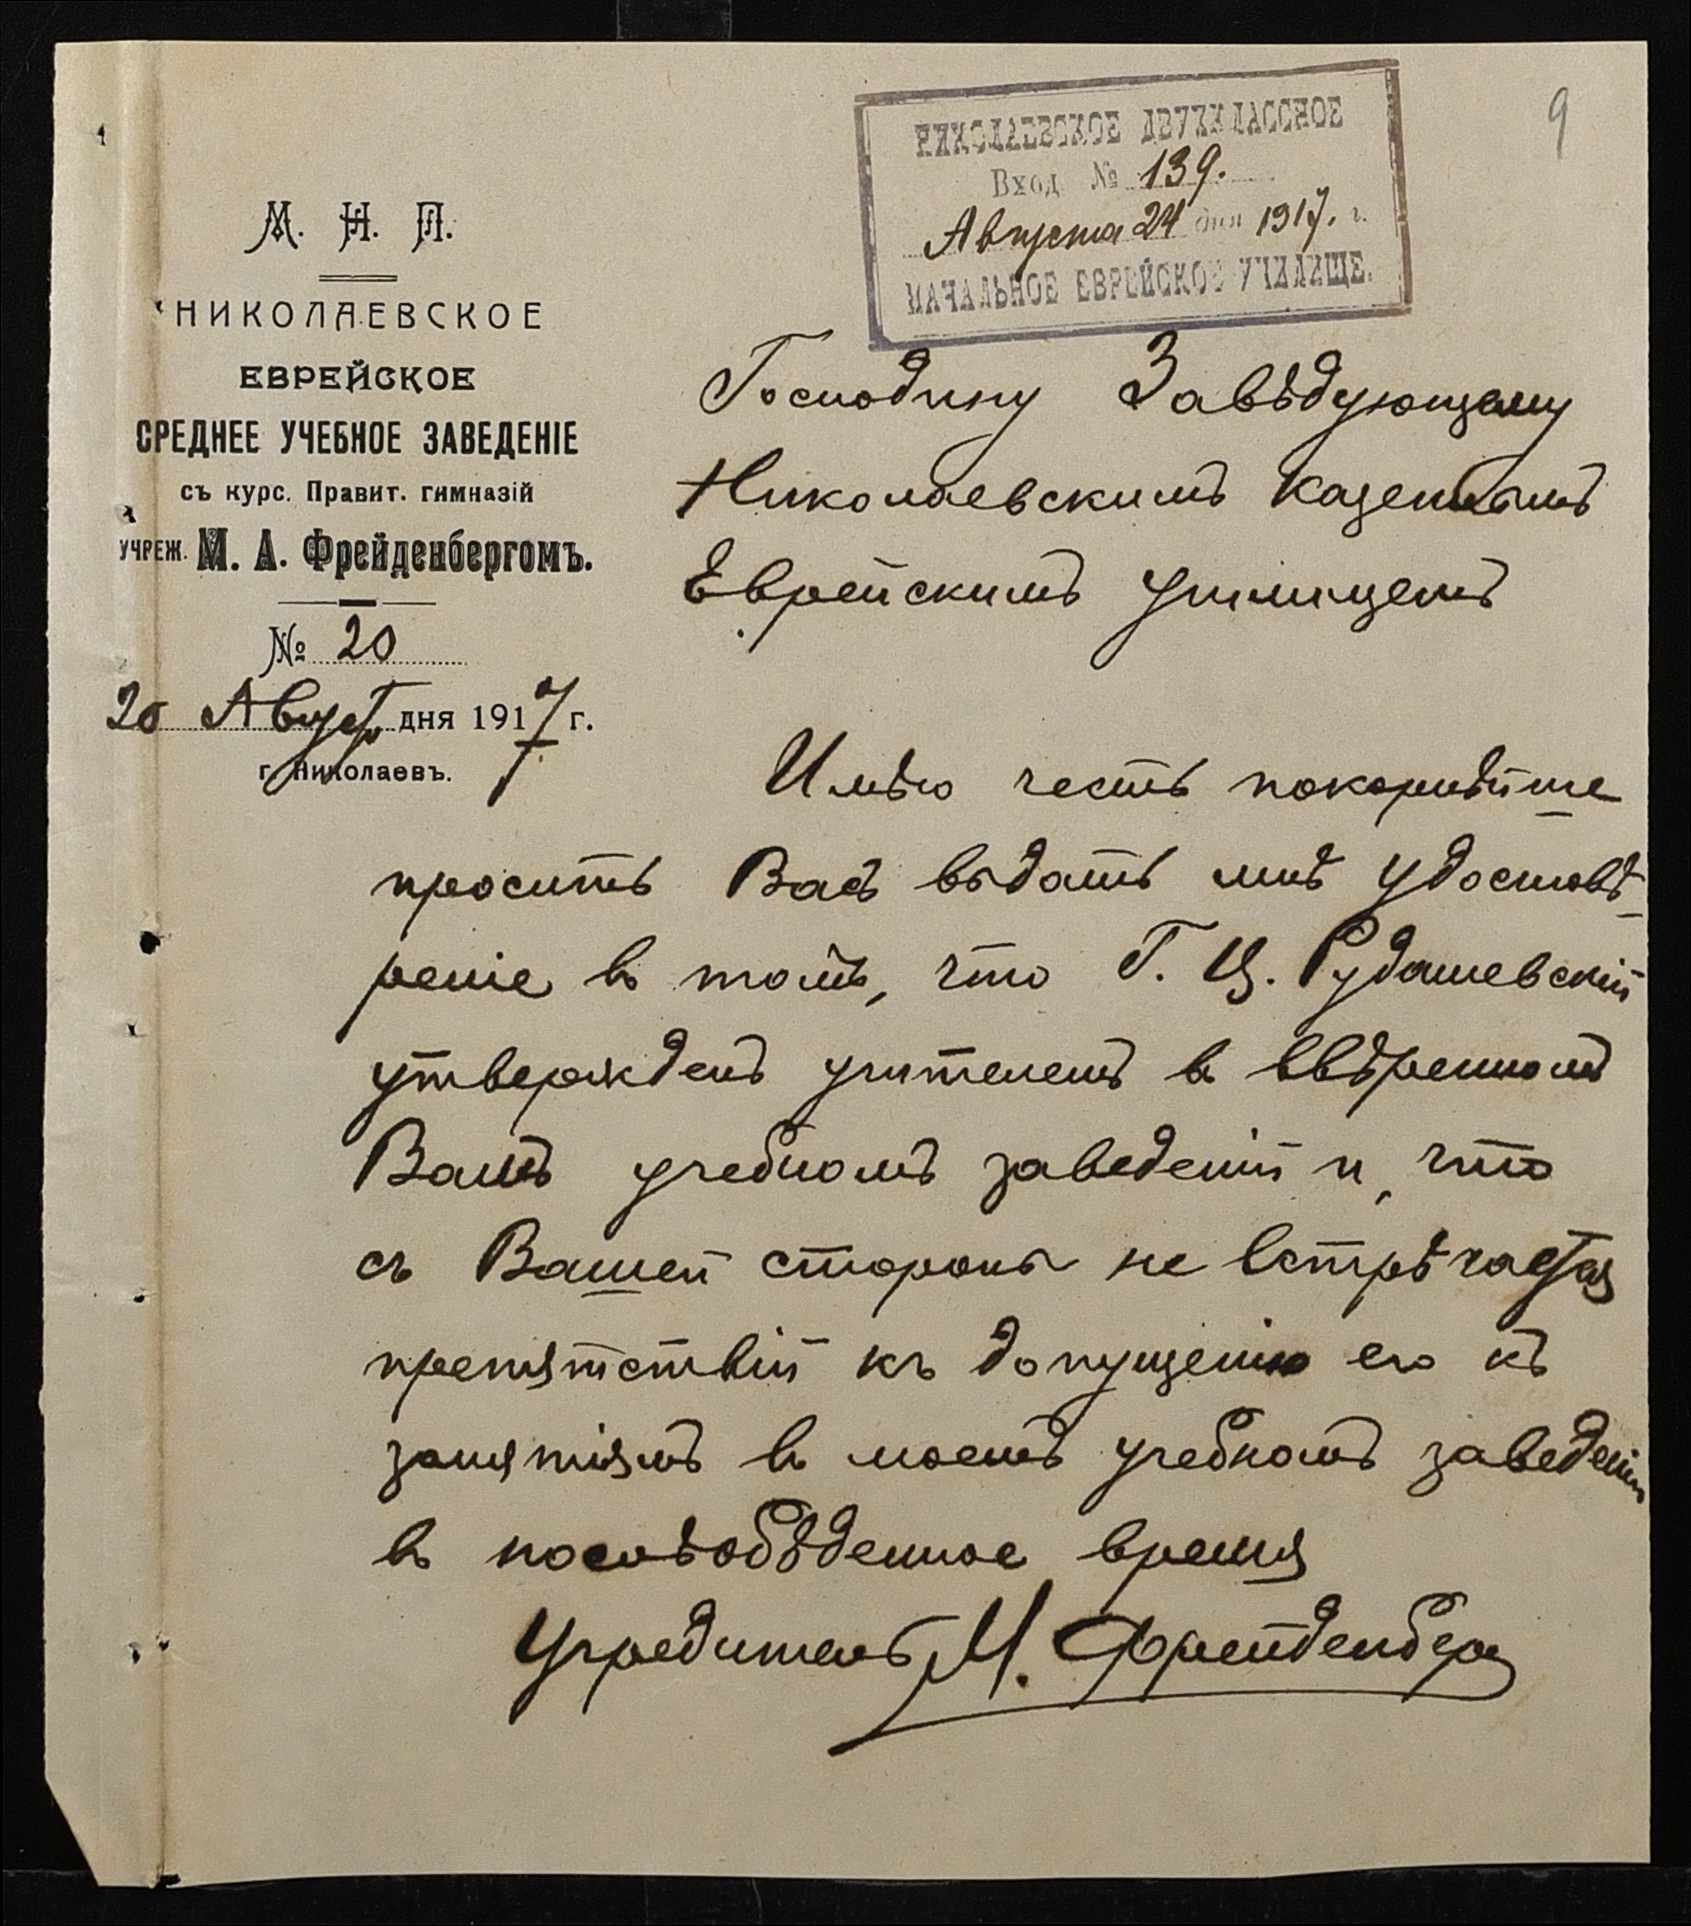 9
НИКОЛАЕВСКОЕ ДВУХКЛАССНОЕ
Вход № 139.
Августа 24 дня 1917. г.
НАЧАЛЬНОЕ ЕВРЕЙСКОЕ УЧИЛИЩЕ.
М. Н. П.
НИКОЛАЕВСКОЕ
ЕВРЕЙСКОЕ
СРЕДНЕЕ УЧЕБНОЕ ЗАВЕДЕНІЕ
съ курс. Правит. гимназій
УЧРЕЖ. М. А. Фрейденбергомъ.
№ 20
20 Август дня 1917 г.
г. Николаевъ.
Господину Завѣдующему
Николаевскимъ Казеннымъ
Еврейскимъ училищемъ
Имѣю честь покорнѣйше
просить Васъ выдать мнѣ удостовѣ-
реніе въ томъ, что Г. Ц. Рудашевскій
утвержденъ учителемъ въ ввѣренномъ
Вамъ учебномъ заведеніи и, что
съ Вашей стороны не встрѣчается
препятствій къ допущенію его къ
занятіямъ въ моемъ учебномъ заведеніи
въ послѣобѣденное время
Учредитель М. Фрейденберг